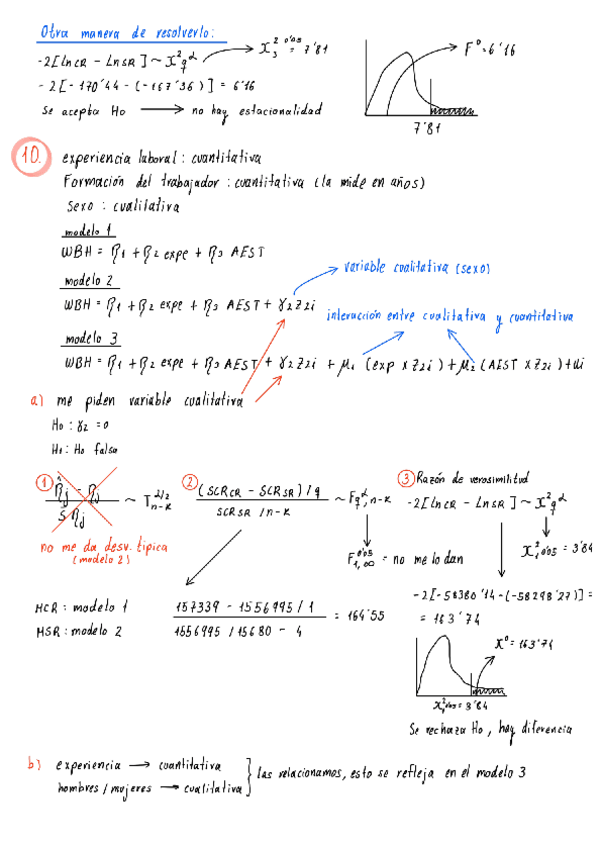 Otra manera de resolverlo:
-2[lnCR - LnSR] ~ X²q^α → X²3^0'05 = 7'81
-2[-170'44 - (-167'36)] = 6'16
Se acepta Ho → no hay estacionalidad
F⁰=6'16
7'81
10. experiencia laboral: cuantitativa
Formación del trabajador: cuantitativa (la mide en años)
Sexo: cualitativa
modelo 1
WBH = β1 + β2 expe + β3 AEST
modelo 2
WBH = β1 + β2 expe + β3 AEST + γ2 Z2i
variable cualitativa (sexo)
interacción entre cualitativa y cuantitativa
modelo 3
WBH = β1 + β2 expe + β3 AEST + γ2 Z2i + μ1 (exp x Z2i) + μ2 (AEST x Z2i) + ui
a) me piden variable cualitativa
Ho: γ2 = 0
H1: Ho falsa
① β̂j - βj / S βj ~ T^α/2 n-k
no me da desv. tipica
(modelo 2)
② (SCRCR - SCRSR)/q / SCRSR/n-k ~ F^α q, n-k
F^0'05 1,∞ = no me lo dan
③ Razón de verosimilitud
-2[LnCR - LnSR] ~ X²q^α
X²1^0'05 = 3'84
MCR: modelo 1
MSR: modelo 2
157339 - 1556995 / 1
1556995 / 15680 - 4
= 164'55
-2[-58380'14 - (-58298'27)] =
= 163'74
X⁰ = 163'74
X²1^0'05 = 3'84
Se rechaza Ho, hay diferencia
b) experiencia → cuantitativa
hombres / mujeres → cualitativa
las relacionamos, esto se refleja en el modelo 3